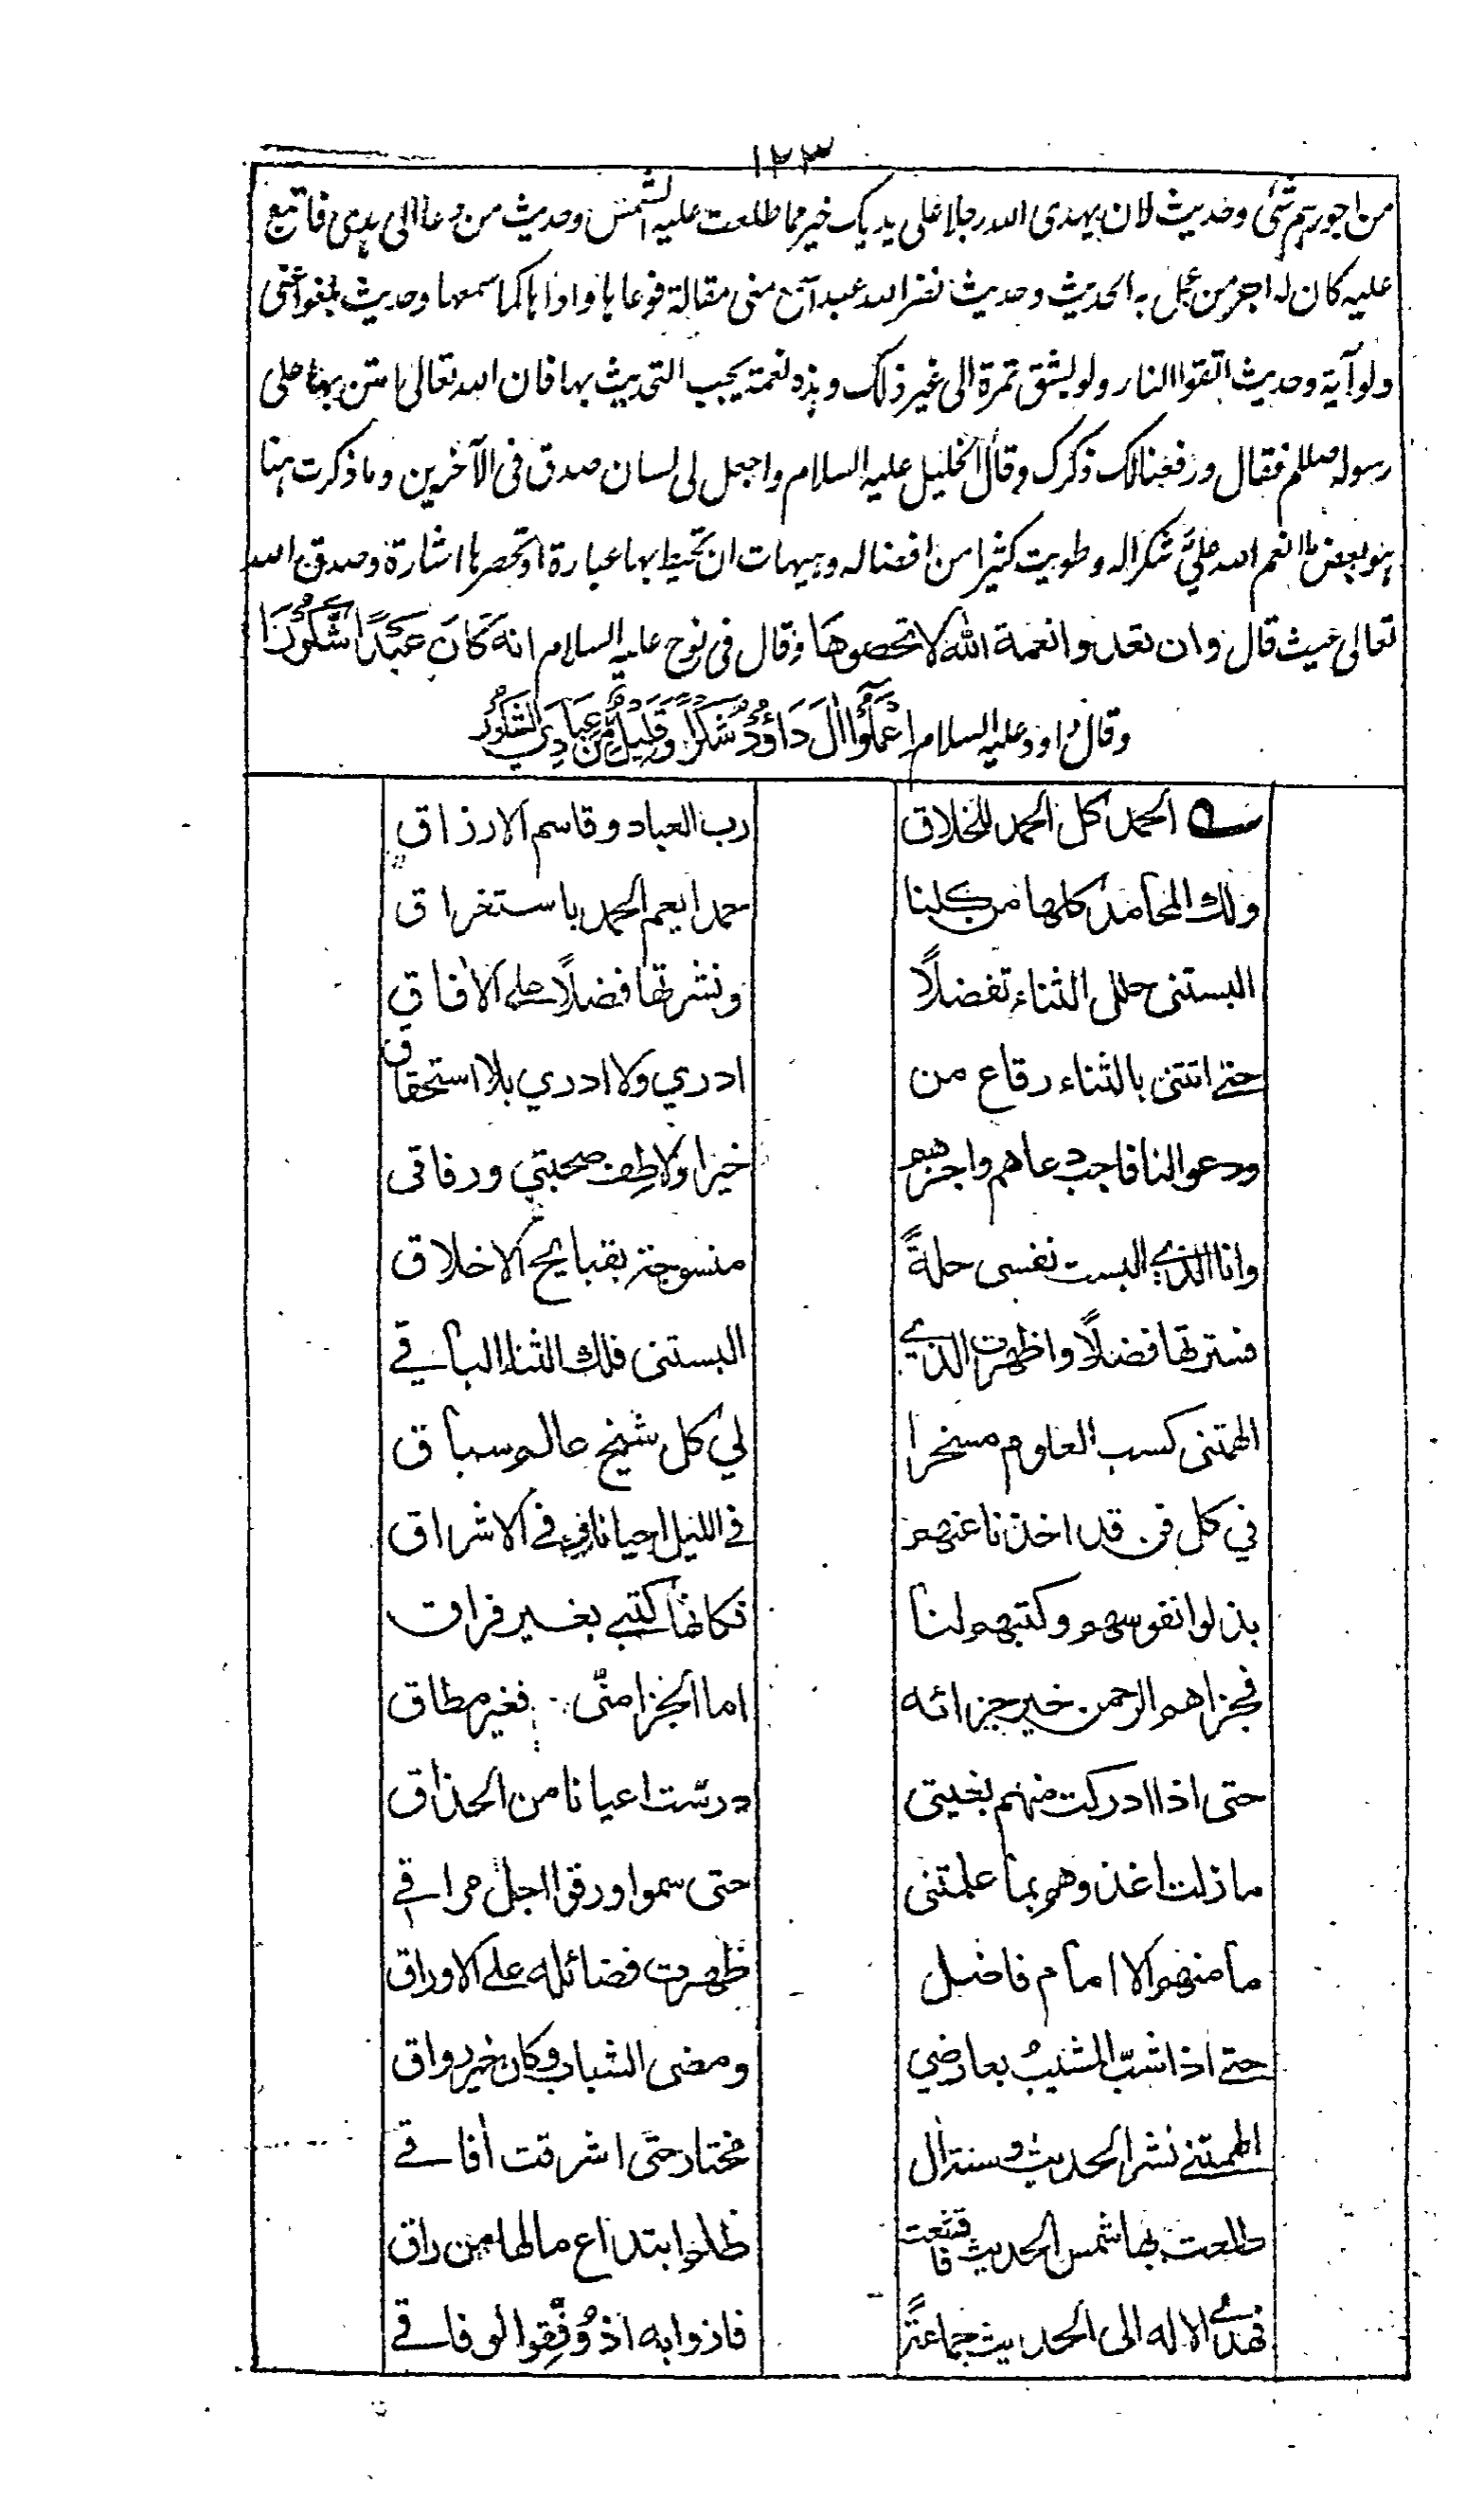 ١٢٣
من اجورهم شئ وحديث لان يهدى الله رجلا على يديك خير مما طلعت عليه الشمس وحديث من دعا الى هدى فاتبع
عليه كان له اجر من عمل به الحديث وحديث نضر الله عبدا سمع منى مقالة فوعاها واداها كما سمعها وحديث بلغوا عنى
ولو آية وحديث اتقوا النار ولو بشق تمرة الى غير ذلك وهذه نعمة يجب التحديث بها فان الله تعالى امتن بها على
رسوله صللم فقال ورفعنا لك ذكرك وقال الخليل عليه السلام واجعل لى لسان صدق فى الآخرين وما ذكرت هنا
هو بعض ما انعم الله علىّ شكرا له وطويت كثيرا من افضاله وهيهات ان تحيط بها عبارة او تحصرها اشارة وصدق الله
تعالى حيث قال وان تعدوا نعمة الله لا تحصوها وقال فى نوح عليه السلام انه كَانَ عَبْدًا شَكُوْرًا
وقال داود عليه السلام اِعْمَلُوْا آلَ دَاوٗدَ شُكْرًا وَقَلِيْلٌ مِّنْ عِبَادِيَ الشَّكُوْرُ
الحمد كل الحمد للخلاق رب العباد وقاسم الارزاق
ولك المحامد كلها من كلنا حمدا يعم الحمد باستغراق
البستنى حلل الثناء تفضلاً ونشرتها فضلاً على الافاق
حتى اتتنى بالثناء رقاع من ادري ولا ادري بلا استحقاق
ودعوا لنا فاجب دعاهم واجزهم خيرا ولاطف صحبتي ورفاقى
وانا الذي البست نفسى حلةً منسوجة بقبايح الاخلاق
فسترتها فضلاً واظهرت الذي البستنى فلك الثناء الباقي
الهمتنى كسب العلوم مسخرا لي كل شيخ عالم سباق
في كل فن قد اخذنا عنهم فى الليل احيانا وفي الاشراق
بذلوا نفوسهم وكتبهم لنا فكانها كتبي بغير فراق
فجزاهم الرحمن خير جزائه اما الجزا منّى فغير مطاق
حتى اذا ادركت منهم بغيتى درّست اعيانا من الحذاق
ما زلت اغذوهم بما علمتنى حتى سموا ورقوا اجل مراقي
ما منهم الا امام فاضل ظهرت فضائله على الاوراق
حتى اذا شبّ المشيبُ بعارضي ومضى الشباب وكان خير رواق
الهمتنى نشر الحديث وسنة ال مختار حتى اشرقت افاقي
طلعت بها شمس الحديث فانقشعت ظلم ابتداع مالها من راق
فهدى الاله الى الحديث جماعةً فازوا به اذ وُفِّقوا لوفاقي